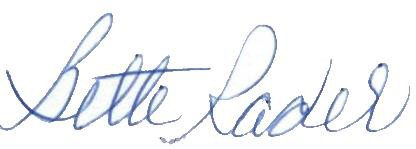 Bette Rader